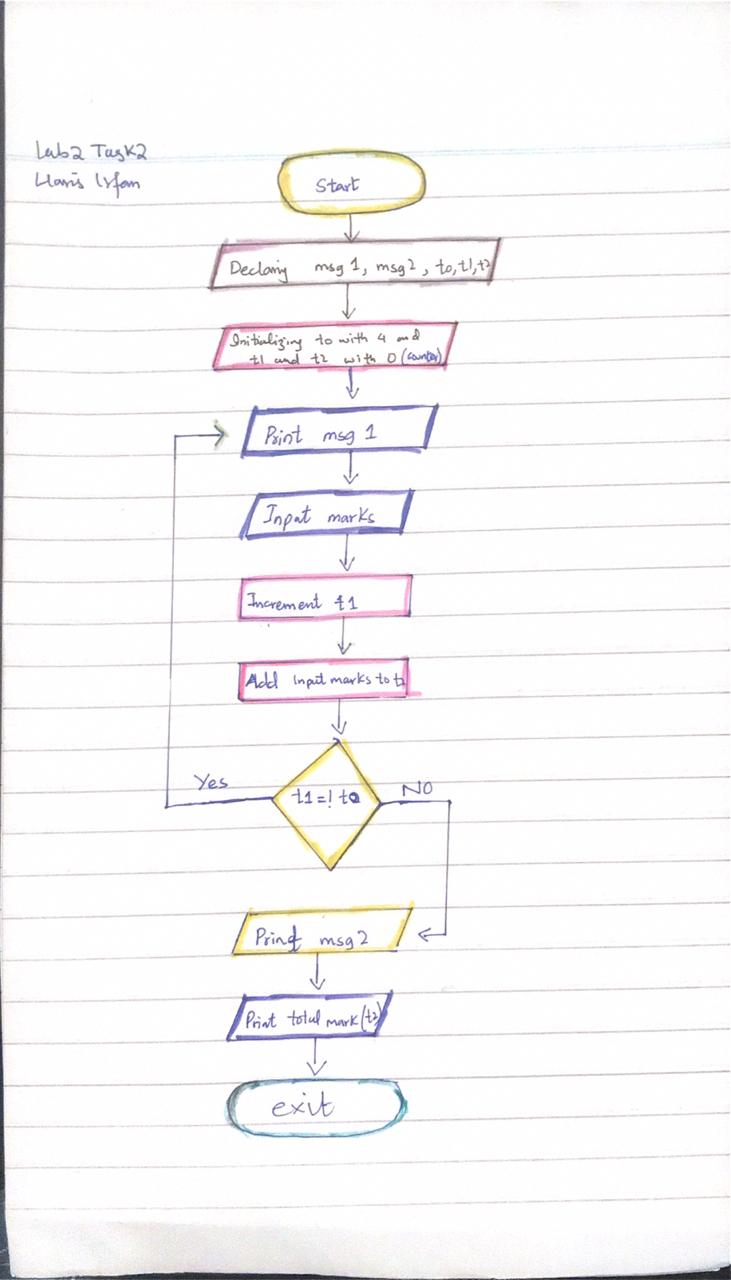 Lab2 Task2
Haris Irfan
Start
Declaring msg 1, msg2, t0, t1, t2
Initializing t0 with 4 and
t1 and t2 with 0 (counter)
Print msg 1
Input marks
Increment t1
Add input marks to t2
Yes
t1=! t0
NO
Print msg 2
Print total mark (t2)
exit